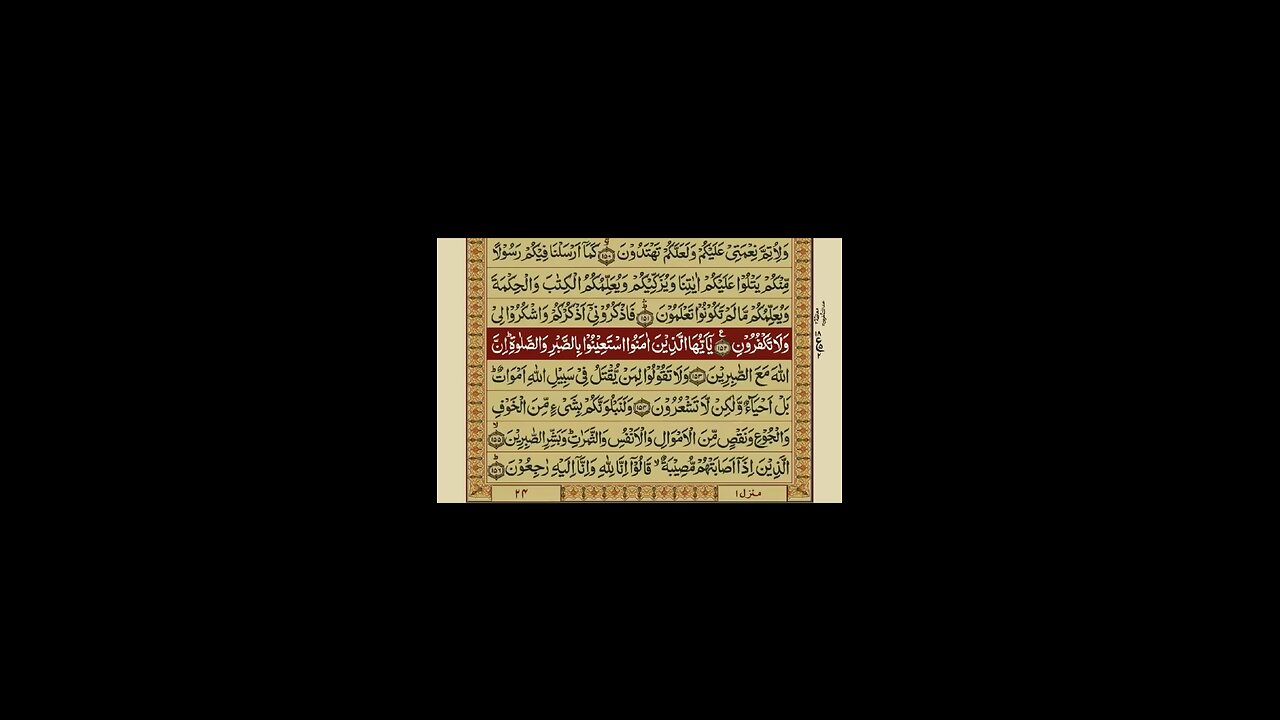 وَلِاُتِمَّ نِعْمَتِیْ عَلَیْكُمْ وَلَعَلَّكُمْ تَهْتَدُوْنَ ۙ﴿۱۵۰﴾ كَمَاۤ اَرْسَلْنَا فِیْكُمْ رَسُوْلًا
مِّنْكُمْ یَتْلُوْا عَلَیْكُمْ اٰیٰتِنَا وَیُزَكِّیْكُمْ وَیُعَلِّمُكُمُ الْكِتٰبَ وَالْحِكْمَةَ
وَیُعَلِّمُكُمْ مَّا لَمْ تَكُوْنُوْا تَعْلَمُوْنَ ؕ﴿۱۵۱﴾ فَاذْكُرُوْنِیْۤ اَذْكُرْكُمْ وَاشْكُرُوْا لِیْ
وَلَا تَكْفُرُوْنِ ﴿۱۵۲﴾ ع یٰۤاَیُّهَا الَّذِیْنَ اٰمَنُوا اسْتَعِیْنُوْا بِالصَّبْرِ وَالصَّلٰوةِ ؕ اِنَّ
اللّٰهَ مَعَ الصّٰبِرِیْنَ ﴿۱۵۳﴾ وَلَا تَقُوْلُوْا لِمَنْ یُّقْتَلُ فِیْ سَبِیْلِ اللّٰهِ اَمْوَاتٌ ؕ
بَلْ اَحْیَآءٌ وَّلٰكِنْ لَّا تَشْعُرُوْنَ ﴿۱۵۴﴾ وَلَنَبْلُوَنَّكُمْ بِشَیْءٍ مِّنَ الْخَوْفِ
وَالْجُوْعِ وَنَقْصٍ مِّنَ الْاَمْوَالِ وَالْاَنْفُسِ وَالثَّمَرٰتِ ؕ وَبَشِّرِ الصّٰبِرِیْنَ ۙ﴿۱۵۵﴾
الَّذِیْنَ اِذَاۤ اَصَابَتْهُمْ مُّصِیْبَةٌ ۙ قَالُوْۤا اِنَّا لِلّٰهِ وَاِنَّاۤ اِلَیْهِ رٰجِعُوْنَ ؕ﴿۱۵۶﴾
منزل ۱
۲۴